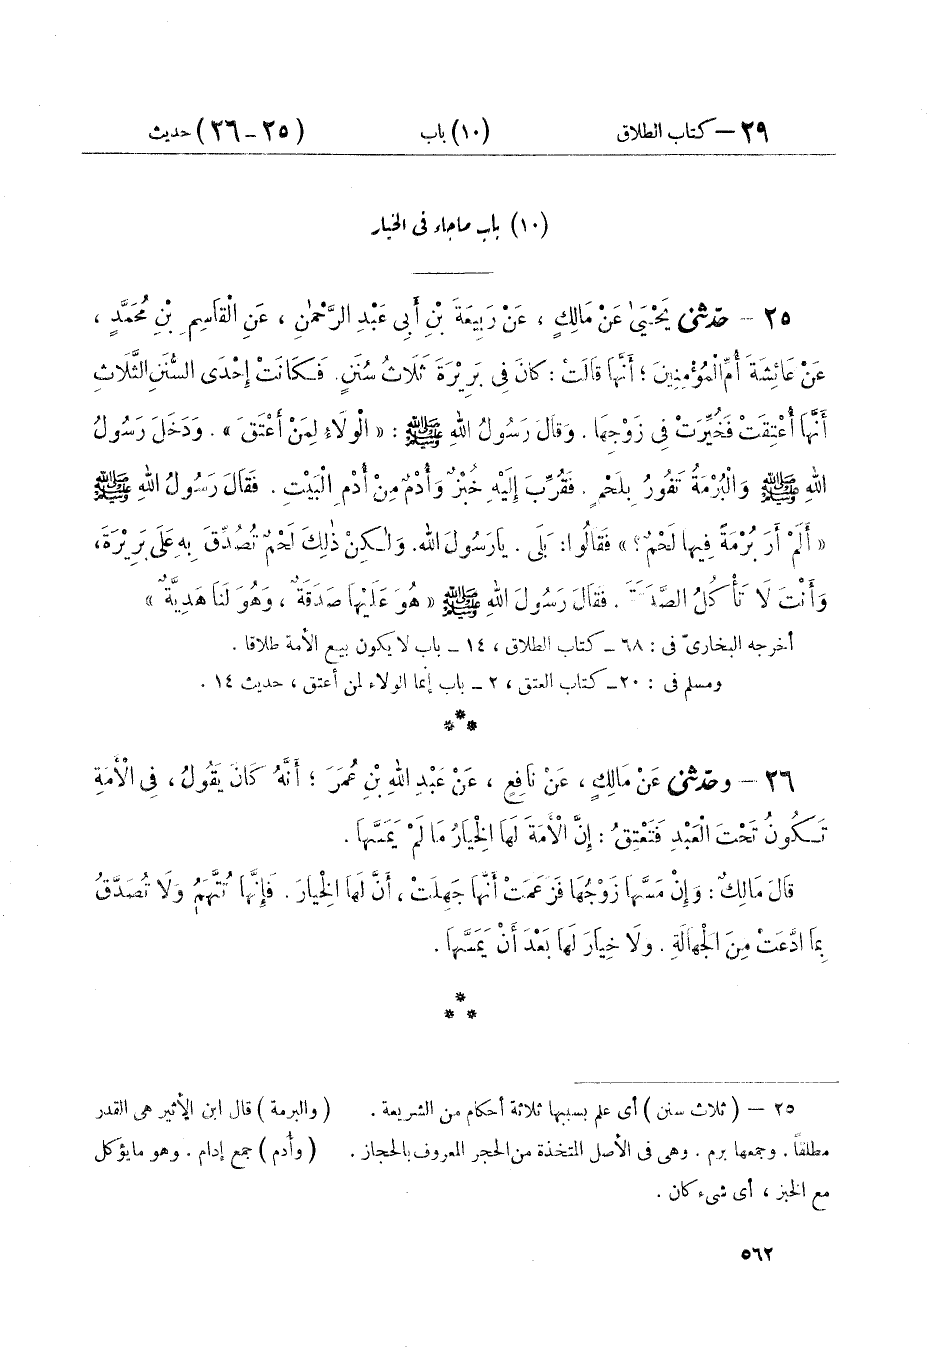 ٢٩ – كتاب الطلاق (١٠) باب (٢٥ – ٢٦) حديث
(١٠) باب ماجاء فى الخيار
٢٥ – حَدَّثَنِى يَحْيَىٰ عَنْ مَالِكٍ ، عَنْ رَبِيعَةَ بْنِ أَبِى عَبْدِ الرَّحْمٰنِ ، عَنِ الْقَاسِمِ بْنِ مُحَمَّدٍ ،
عَنْ عَائِشَةَ أُمِّ الْمُؤْمِنِينَ ؛ أَنَّهَا قَالَتْ : كَانَ فِى بَرِيرَةَ ثَلَاثُ سُنَنٍ. فَكَانَتْ إِحْدَى السُّنَنِ الثَّلَاثِ
أَنَّهَا أُعْتِقَتْ فَخُيِّرَتْ فِى زَوْجِهَا . وَقَالَ رَسُولُ اللهِ ﷺ : « الْوَلَاءُ لِمَنْ أَعْتَقَ » . وَدَخَلَ رَسُولُ
اللهِ ﷺ وَالْبُرْمَةُ تَفُورُ بِلَحْمٍ . فَقُرِّبَ إِلَيْهِ خُبْزٌ وَأُدْمٌ مِنْ أُدْمِ الْبَيْتِ . فَقَالَ رَسُولُ اللهِ ﷺ
« أَلَمْ أَرَ بُرْمَةً فِيهَا لَحْمٌ ؟ » فَقَالُوا : بَلَى . يَارَسُولَ اللهِ. وَلَـٰكِنْ ذٰلِكَ لَحْمٌ تُصُدِّقَ بِهِ عَلَى بَرِيرَةَ،
وَأَنْتَ لَا تَأْكُلُ الصَّدَقَةَ . فَقَالَ رَسُولُ اللهِ ﷺ « هُوَ عَلَيْهَا صَدَقَةٌ ، وَهُوَ لَنَا هَدِيَّةٌ »
أخرجه البخارىّ فى : ٦٨ ـ كتاب الطلاق ، ١٤ ـ باب لا يكون بيع الأمة طلاقا .
ومسلم فى : ٢٠ـ كتاب العتق ، ٢ ـ باب إنما الولاء لمن أعتق ، حديث ١٤ .
***
٢٦ – وحَدَّثَنِى عَنْ مَالِكٍ ، عَنْ نَافِعٍ ، عَنْ عَبْدِ اللهِ بْنِ عُمَرَ ؛ أَنَّهُ كَانَ يَقُولُ ، فِى الْأَمَةِ
تَكُونُ تَحْتَ الْعَبْدِ فَتَعْتِقُ : إِنَّ الْأَمَةَ لَهَا الْخِيَارُ مَا لَمْ يَمَسَّهَا .
قَالَ مَالِكٌ : وَإِنْ مَسَّهَا زَوْجُهَا فَزَعَمَتْ أَنَّهَا جَهِلَتْ ، أَنَّ لَهَا الْخِيَارَ . فَإِنَّهَا تُتَّهَمُ وَلَا تُصَدَّقُ
بِمَا ادَّعَتْ مِنَ الْجَهَالَةِ . وَلَا خِيَارَ لَهَا بَعْدَ أَنْ يَمَسَّهَا .
***
٢٥ – ( ثلاث سنن ) أى علم بسببها ثلاثة أحكام من الشريعة . ( والبرمة ) قال ابن الأثير هى القدر
مطلقاً . وجمعها برم . وهى فى الأصل المتخذة من الحجر المعروف بالحجاز . ( وأُدم ) جمع إدام . وهو مايؤكل
مع الخبز ، أى شىء كان .
٥٦٢